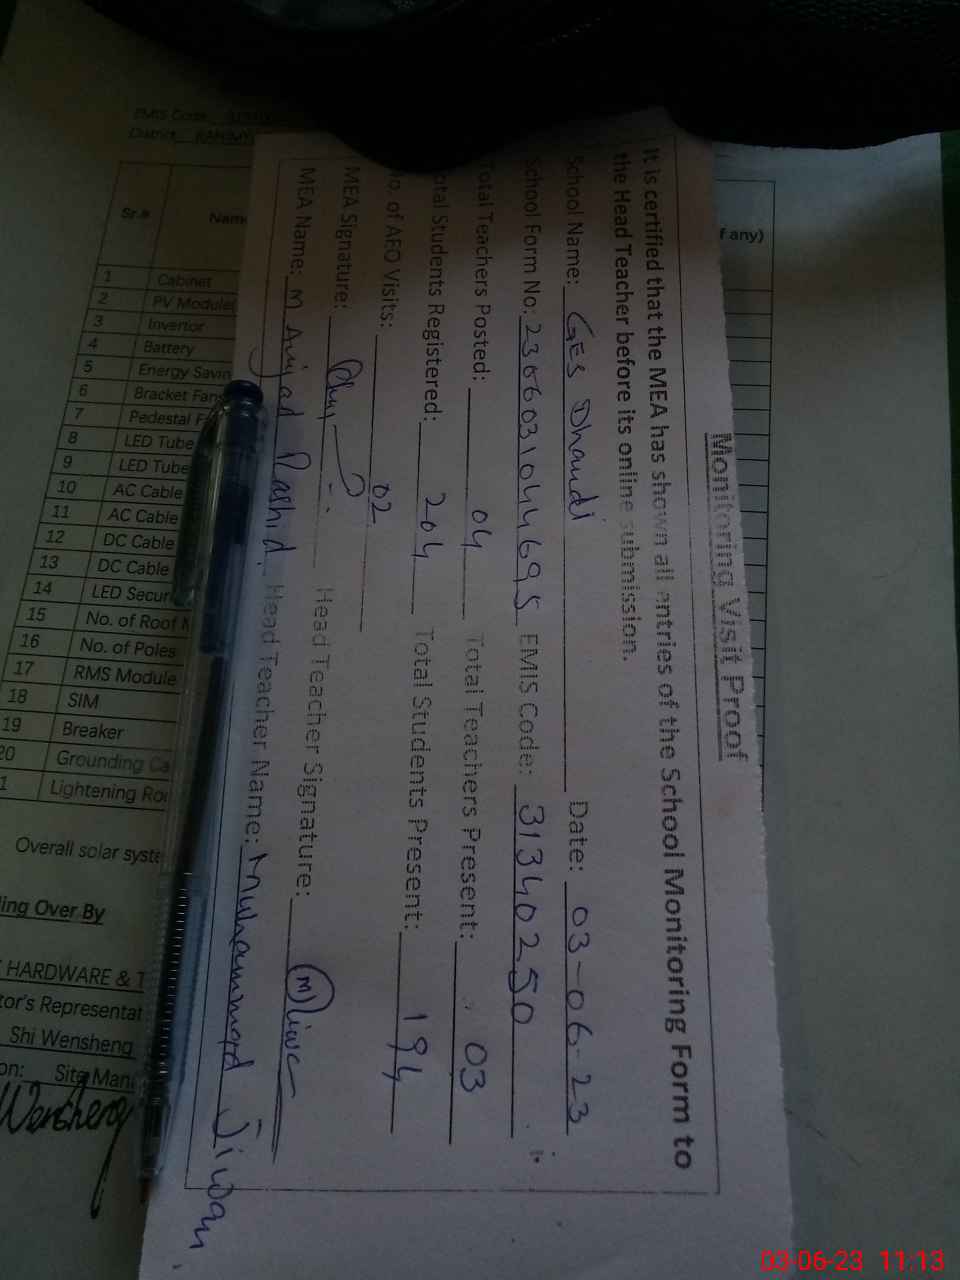 Monitoring Visit Proof
It is certified that the MEA has shown all entries of the School Monitoring Form to
the Head Teacher before its online submission.
School Name: GES Dhandi Date: 03-06-23
School Form No: 2366031044695 EMIS Code: 31340250
Total Teachers Posted: 04 Total Teachers Present: 03
Total Students Registered: 204 Total Students Present: 194
No. of AEO Visits: 02
MEA Signature: Head Teacher Signature:
MEA Name: M Amjad Rashid Head Teacher Name: Muhammad Jiwan
EMIS Code
District
f any)
Sr.# Name
1 Cabinet
2 PV Module
3 Invertor
4 Battery
5 Energy Savin
6 Bracket Fans
7 Pedestal F
8 LED Tube
9 LED Tube
10 AC Cable
11 AC Cable
12 DC Cable
13 DC Cable
14 LED Secur
15 No. of Roof
16 No. of Poles
17 RMS Module
18 SIM
19 Breaker
20 Grounding Ca
1 Lightening Ro
Overall solar syste
ing Over By
HARDWARE & T
tor's Representat
Shi Wensheng
on: Site Man
Wensheng
03-06-23 11:13